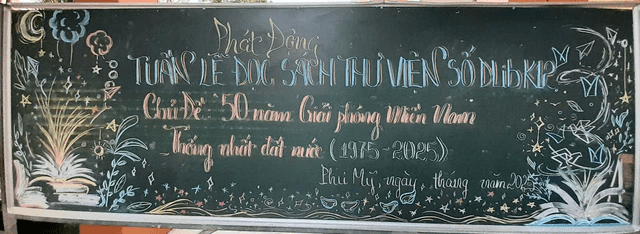 Phát Động
TUẦN LỄ ĐỌC SÁCH THƯ VIỆN SỐ DLibK12
Chủ Đề: 50 năm Giải phóng Miền Nam
Thống nhất đất nước (1975-2025)
Phú Mỹ, ngày, tháng năm 2025